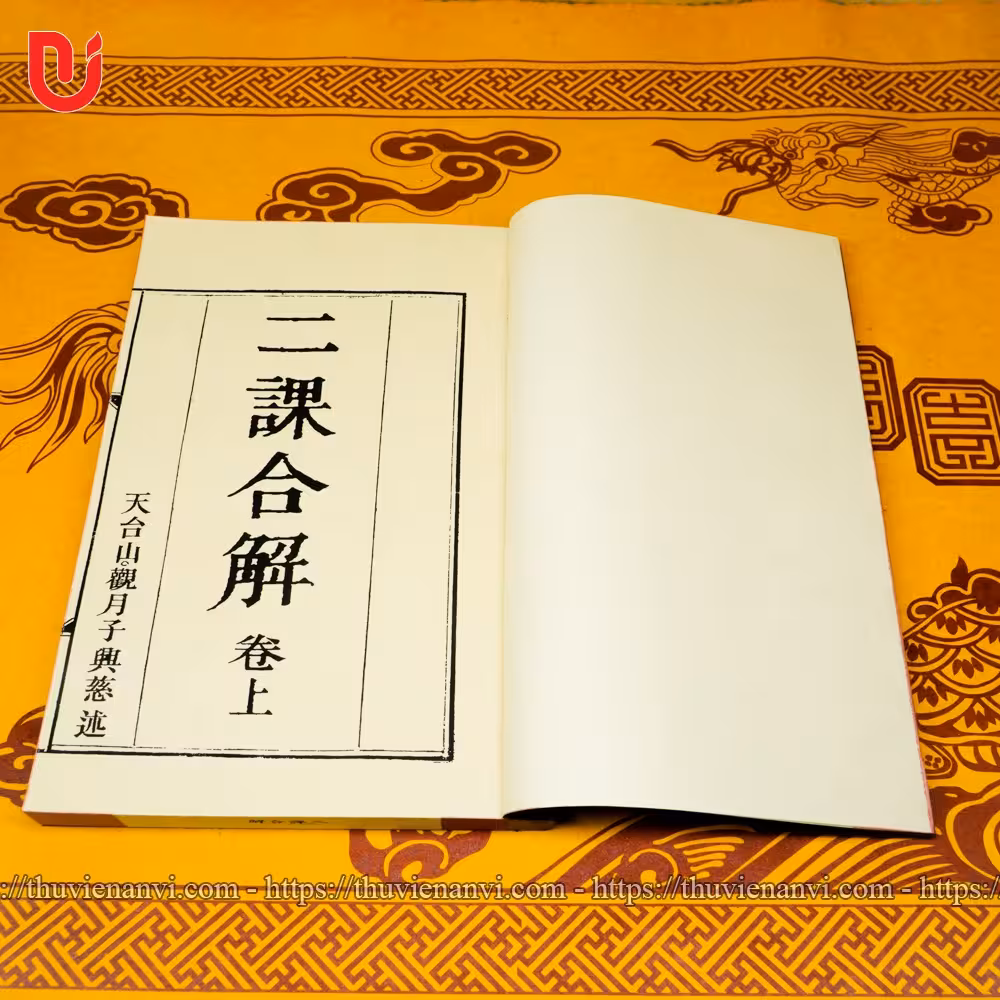 二課合解 卷上
天台山觀月子興慈述
https://thuvienanvi.com - https://thuvienanvi.com - https://thuvienanvi.com -